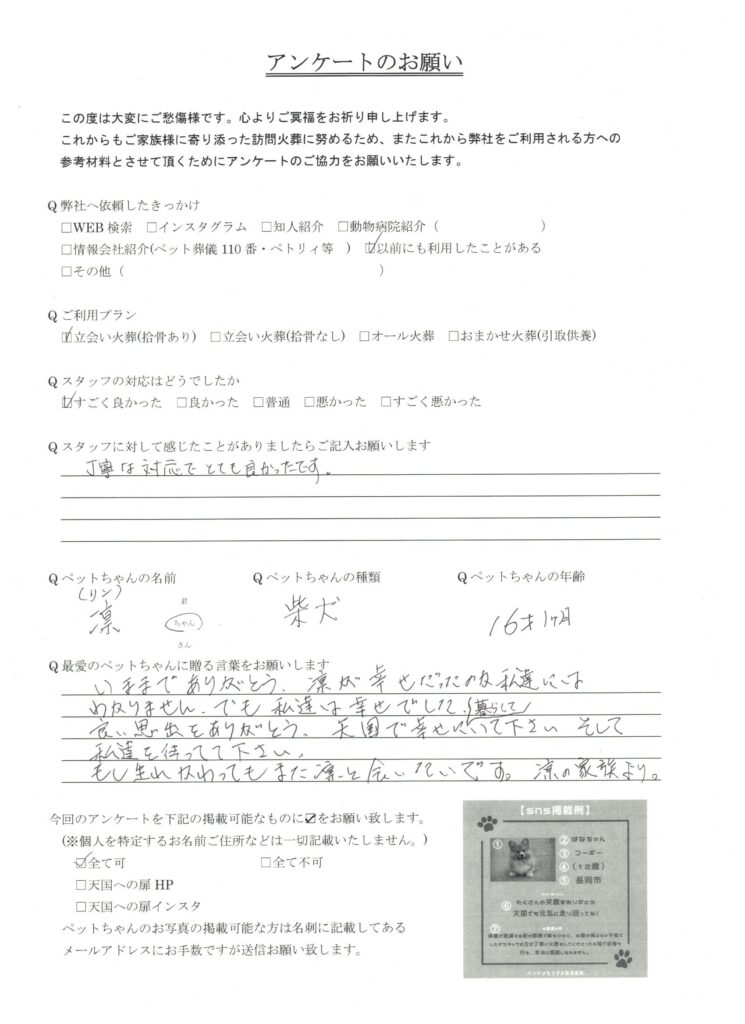 アンケートのお願い
この度は大変にご愁傷様です。心よりご冥福をお祈り申し上げます。
これからもご家族様に寄り添った訪問火葬に努めるため、またこれから弊社をご利用される方への
参考材料とさせて頂くためにアンケートのご協力をお願いいたします。
Q 弊社へ依頼したきっかけ
□WEB 検索 □インスタグラム □知人紹介 □動物病院紹介（ ）
□情報会社紹介(ペット葬儀 110 番・ペトリィ等 ) ☑以前にも利用したことがある
□その他（ ）
Q ご利用プラン
☑立会い火葬(拾骨あり) □立会い火葬(拾骨なし) □オール火葬 □おまかせ火葬(引取供養)
Q スタッフの対応はどうでしたか
☑すごく良かった □良かった □普通 □悪かった □すごく悪かった
Q スタッフに対して感じたことがありましたらご記入お願いします
丁寧な対応でとても良かったです。
Q ペットちゃんの名前 Q ペットちゃんの種類 Q ペットちゃんの年齢
(リン)
凛 君 ちゃん さん 柴犬 16才1ヶ月
Q 最愛のペットちゃんに贈る言葉をお願いします
いままでありがとう、凛が幸せだったのか私達には
わかりません、でも私達は幸せでした。暮らして
良い思出をありがとう、天国で幸せにいて下さい そして
私達を待ってて下さい、
もし生れかわってもまた凛と会いたいです。凛の家族より。
今回のアンケートを下記の掲載可能なものに☑をお願い致します。
(※個人を特定するお名前ご住所などは一切記載いたしません。)
☑全て可 □全て不可
□天国への扉 HP
□天国への扉インスタ
ペットちゃんのお写真の掲載可能な方は名刺に記載してある
メールアドレスにお手数ですが送信お願い致します。
【sns掲載例】
① ②はなちゃん
③ コーギー
④ (12歳)
⑤ 長岡市
⑥ たくさんの笑顔をありがとう
天国でも元気に走り回ってね!
⑦